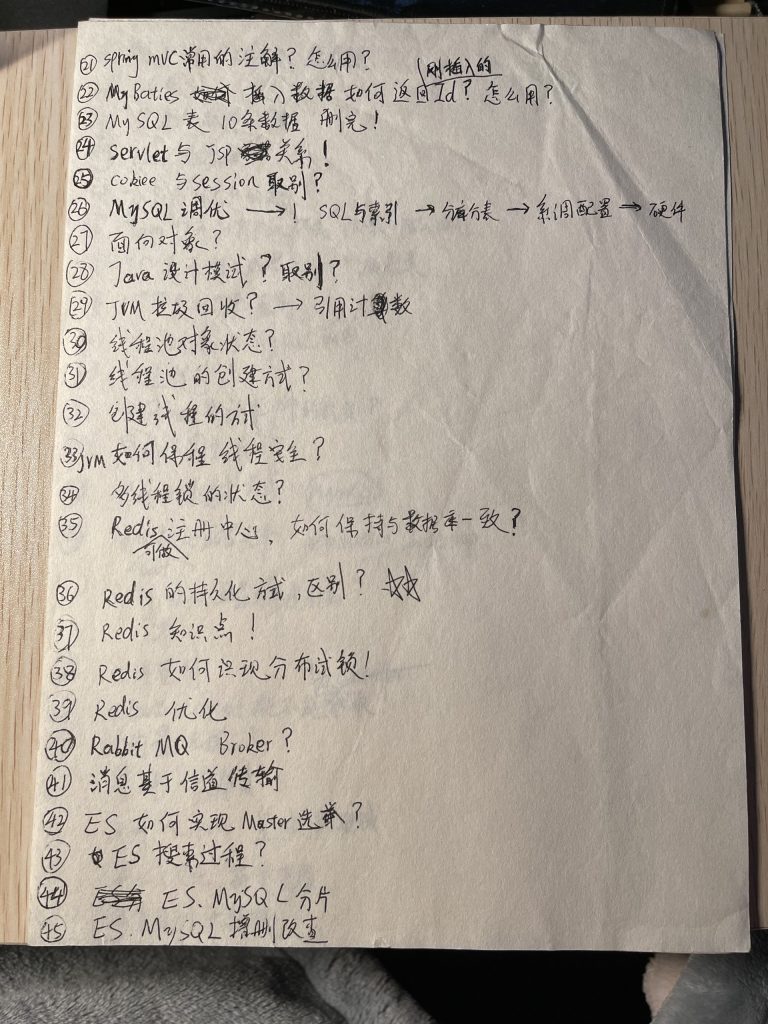 ㉑ spring mvc常用的注解？怎么用？
刚插入的
㉒ MyBaties 插入数据 如何返回Id？怎么用？
㉓ MySQL 表 10条数据 删完！
㉔ servlet与 JSP 关系！
㉕ cokiee 与session 取别？
㉖ MySQL 调优 → ！ SQL与索引 → 分库分表 → 系调配置 → 硬件
㉗ 面向对象？
㉘ Java 设计模试？取别？
㉙ JVM 垃圾回收？ → 引用计数
㉚ 线程池对象状态？
㉛ 线程池的创建方式？
㉜ 创建线程的方式
㉝ jvm 如何保程 线程安全？
㉞ 多线程锁的状态？
㉟ Redis 注册中心，如何保持与数据库一致？
可做
㊱ Redis 的持久化方式，区别？ ☆☆
㊲ Redis 知识点！
㊳ Redis 如何识现分布试锁！
㊴ Redis 优化
㊵ Rabbit MQ Broker？
㊶ 消息基于信道传输
㊷ ES 如何实现 Master 选举？
㊸ ES 搜索过程？
㊹ ES、MySQL 分片
㊺ ES. MySQL 增删改查